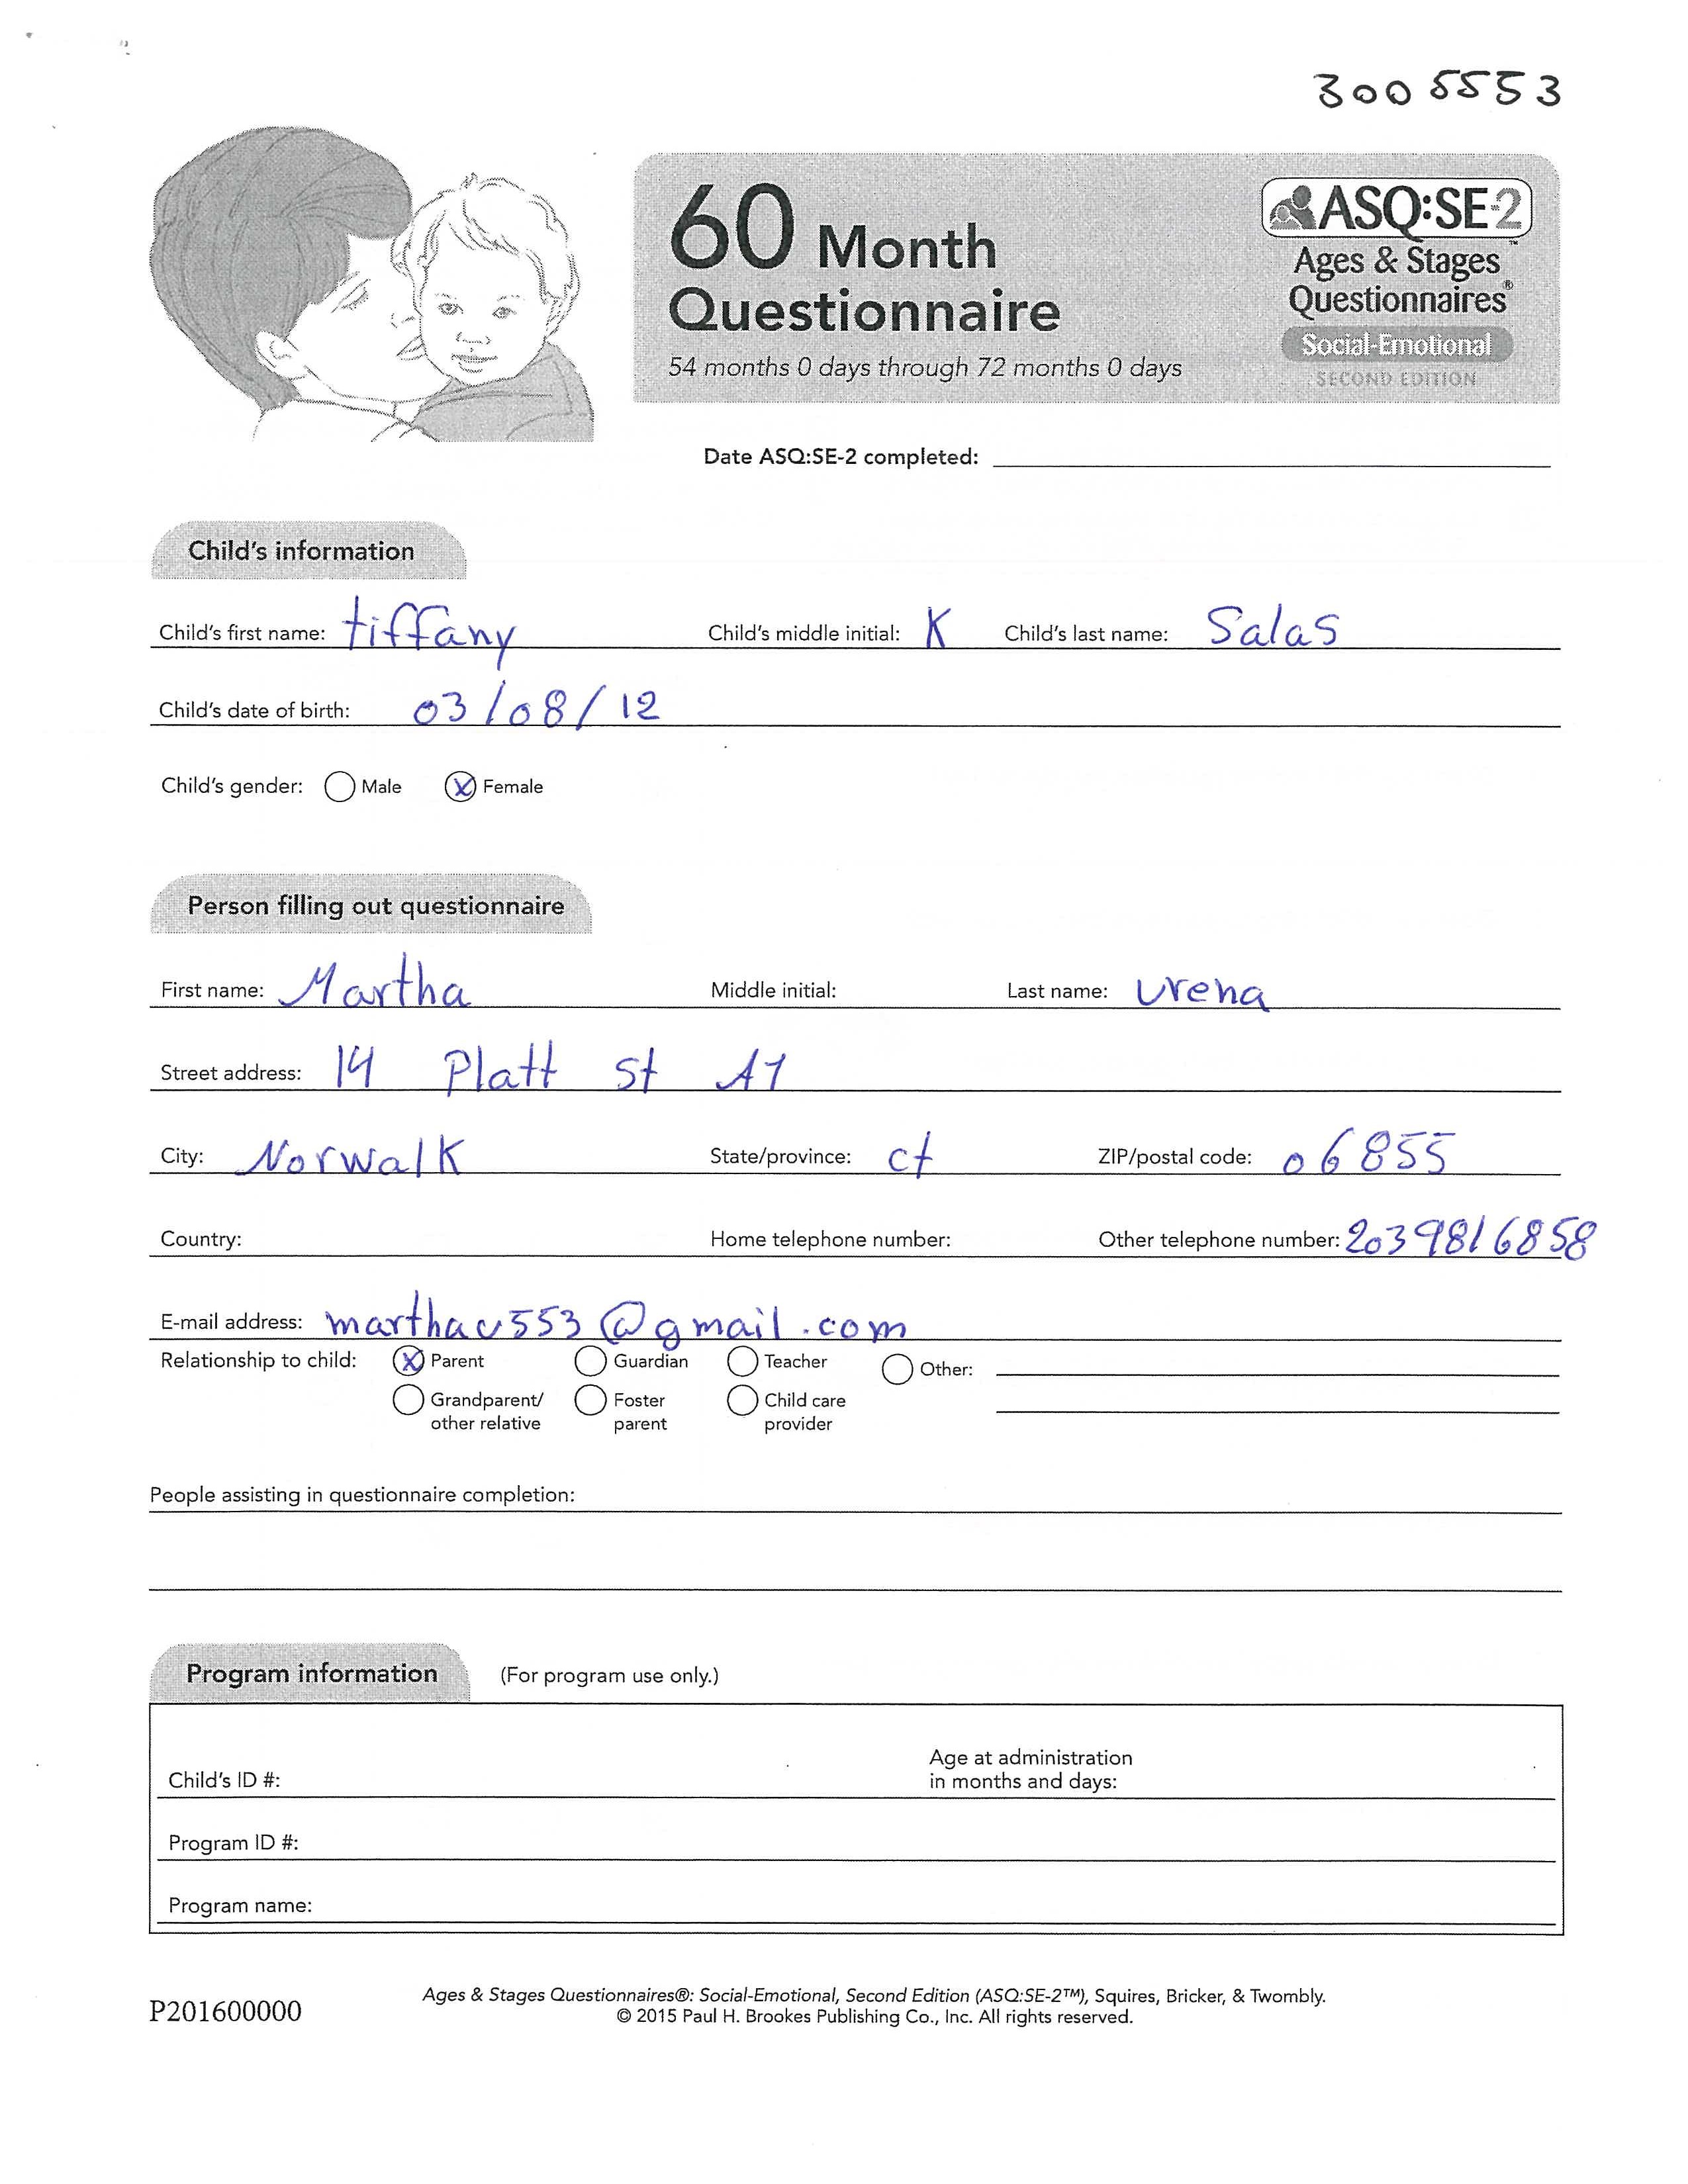 3005553
60 Month
Questionnaire
54 months 0 days through 72 months 0 days
ASQ:SE-2™
Ages & Stages
Questionnaires®
Social-Emotional
SECOND EDITION
Date ASQ:SE-2 completed:
Child's information
Child's first name: tiffany Child's middle initial: K Child's last name: Salas
Child's date of birth: 03/08/12
Child's gender: Male X Female
Person filling out questionnaire
First name: Martha Middle initial: Last name: Urena
Street address: 14 Platt st A1
City: Norwalk State/province: ct ZIP/postal code: 06855
Country: Home telephone number: Other telephone number: 2039816858
E-mail address: marthau553@gmail.com
Relationship to child: X Parent Guardian Teacher Other:
Grandparent/ other relative Foster parent Child care provider
People assisting in questionnaire completion:
Program information (For program use only.)
Child's ID #: Age at administration in months and days:
Program ID #:
Program name:
P201600000
Ages & Stages Questionnaires®: Social-Emotional, Second Edition (ASQ:SE-2™), Squires, Bricker, & Twombly.
© 2015 Paul H. Brookes Publishing Co., Inc. All rights reserved.